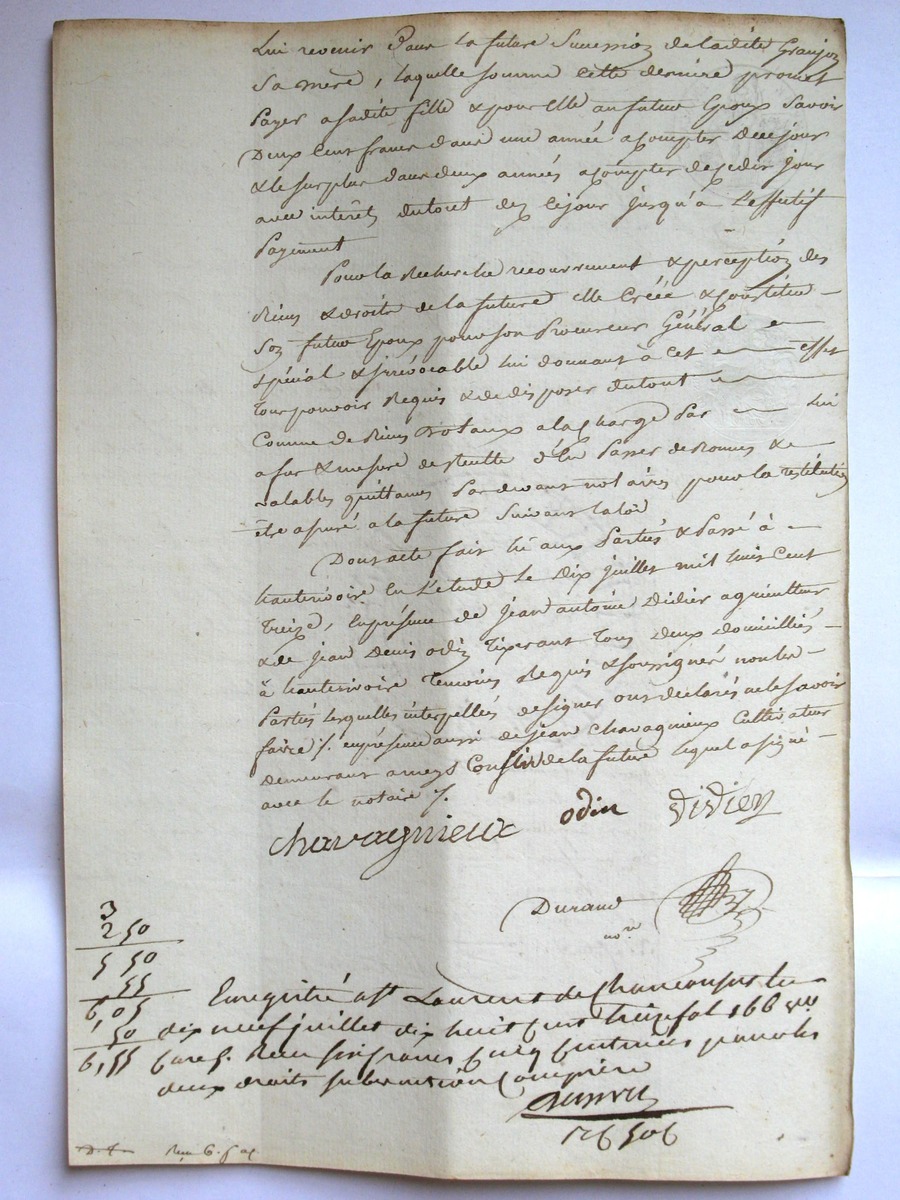 Lui revenir Dans La future Succession de ladite Granjon
Sa mere, laquelle somme cette derniere promet
Payer a sadite fille & pour Elle au futur Epoux Savoir
Deux Cent francs dans une année a Compter De ce jour
& le surplus dans deux années a Compter de jour
avec intérêt dutout dez ce jour jusqu'à L'effectif
Payement
Pour la Recherche recouvrement & perception des
Biens & droits de la future elle Créée & Constitue
Son futur Epoux pour son Procureur Général
Spécial & irrévocable lui donnant à cet effet
Tour pouvoir Requis & de disposer dutout
Comme de Biens Dotaux a la Charge Par lui
a fur & mesure de Recette d'En Passer de Bonnes &
valables quittances Par devant notaires pour la restitution
être assuré a la future Suivant la loi
Dont acte fait lû aux Parties & Passé à
hauterivoire En L'etude le Dix juillet mil huit Cent
Treize, En présence de jean antoine Didier agriculteur
& de jean Denis odin Tixerant Tous Deux Domiciliés
à hauterivoire Temoins Requis & Soussignés non les
Parties lesquelles interpellées de signer ont déclarés ne le Savoir
faire /. en présence aussi de jean Chavagnieux Cultivateur
demeurant a meys Cousin de la future lequel a signé
avec le notaire /.
chavagnieux odin DiDier
Durand
no.re
3
2 50
5 50
55
6,05
50
6,55
Enregistré a St Laurent de Chamousset le
dix neuf juillet dix huit cent treize fol 166 vo
Case 5. Reçu six francs cinq centimes pour les
deux droits subvention Comprise
D. f Reçu 6. f 05